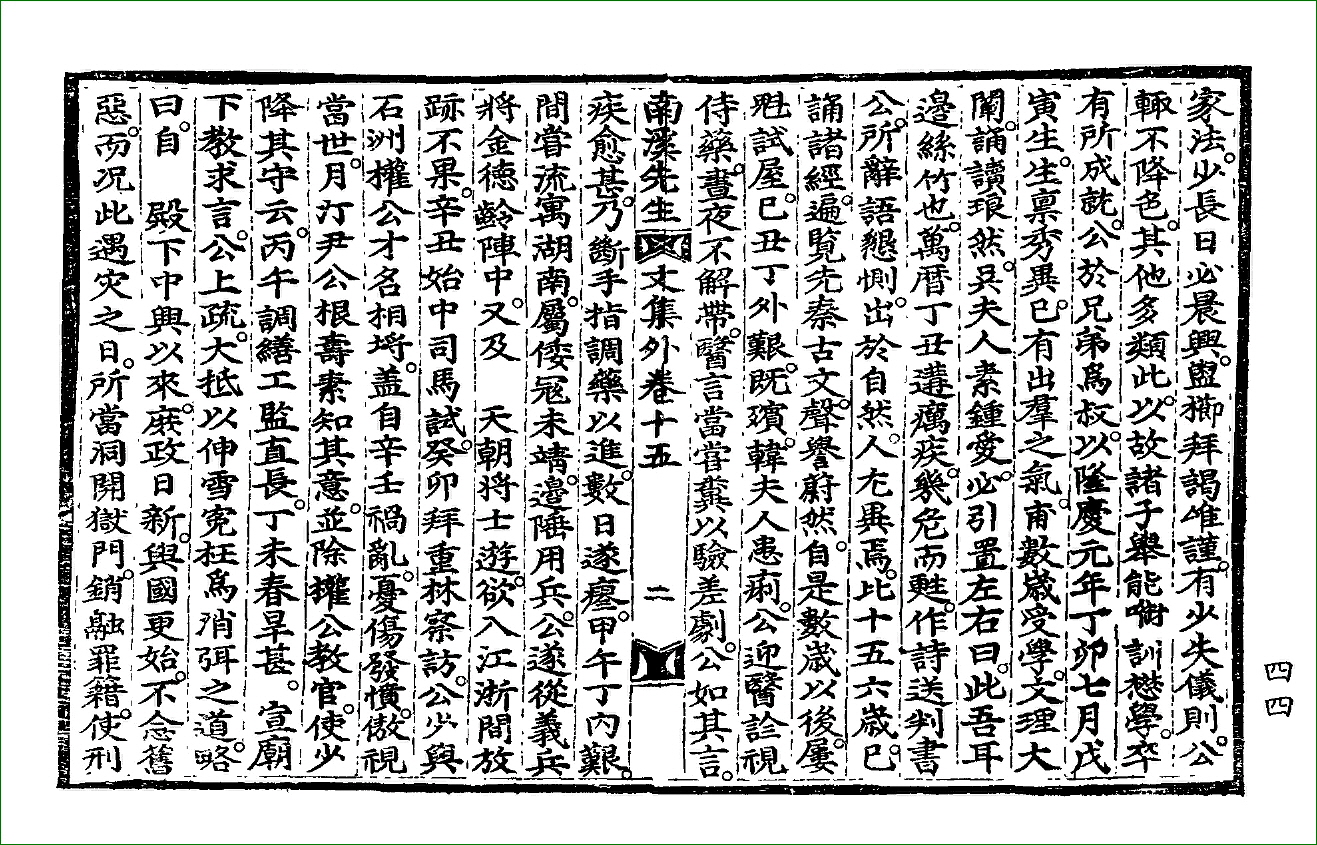 家法。少長日必晨興。盥櫛拜謁唯謹。有少失儀則。公
輒不降色。其他多類此。以故諸子擧能喞訓懋學。卒
有所成就。公於兄弟爲叔。以隆慶元年丁卯七月戊
寅生。生稟秀異。已有出羣之氣。甫數歲受學。文理大
闡。誦讀琅然。吳夫人素鍾愛。必引置左右曰。此吾耳
邊絲竹也。萬曆丁丑。遘癘疾。幾危而甦。作詩送判書
公。所辭語懇惻。出於自然。人尤異焉。比十五六歲。已
誦諸經。遍覽先秦古文。聲譽蔚然。自是數歲以後。屢
魁試屋。己丑丁外艱。旣殯。韓夫人患痢。公迎醫診視
侍藥。晝夜不解帶。醫言當嘗糞以驗差劇。公如其言。
南溪先生文集外卷十五 二
疾愈甚。乃斷手指調藥以進。數日遂瘳。甲午丁內艱。
間嘗流寓湖南。屬倭寇未靖。邊陲用兵。公遂從義兵
將金德齡陣中。又及 天朝將士遊。欲入江浙間放
跡不果。辛丑始中司馬試。癸卯拜重林察訪。公少與
石洲權公才名相埒。盖自辛壬禍亂。憂傷發憤。傲視
當世。月汀尹公根壽素知其意。並除權公敎官。使少
降其守云。丙午調繕工監直長。丁未春旱甚。 宣廟
下敎求言。公上疏。大抵以伸雪寃枉爲消弭之道。略
曰。自 殿下中興以來。庶政日新。與國更始。不念舊
惡。而况此遇灾之日。所當洞開獄門。銷融罪籍。使刑
四四